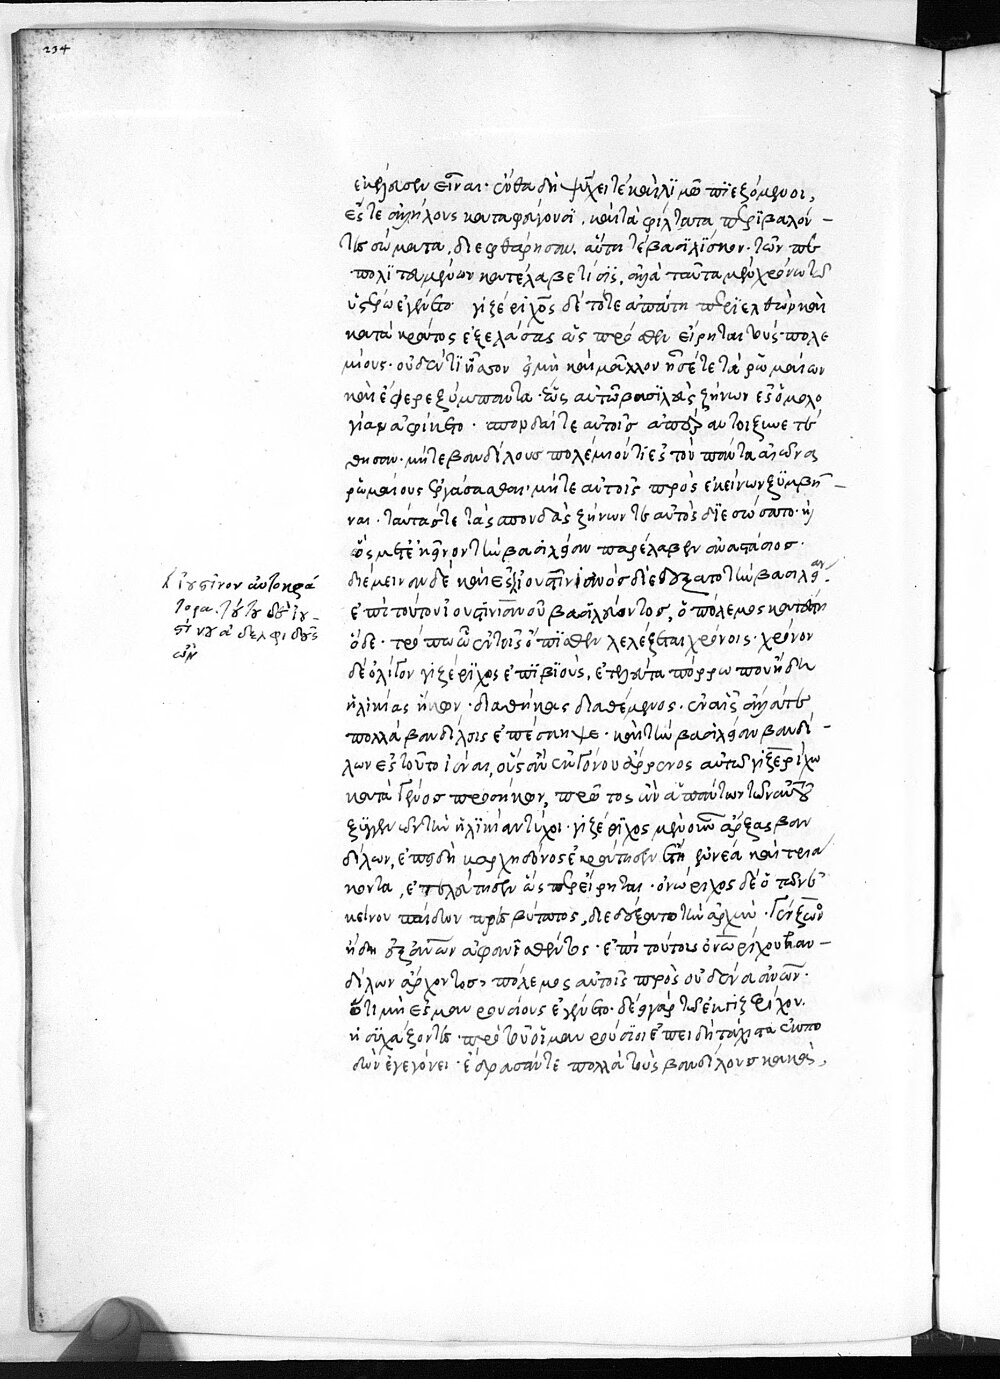 ἐκήρυσσεν εἶναι· ἔνθα δὴ ψύχει τὲ καὶ λιμῶ πϊεζόμενοι,
ἔς τε ἀλλήλους καταφυγόντες, καὶ τὰ φίλτατα περιβαλόν-
τες σώματα, διεφθάρησαν. αὕτη τὲ βασιλίσκον· τῶν πε
πολιτευμένων κατέλαβε τίσις, ἀλλὰ ταῦτα μὲν χρόνω τῶ
ὑστέρω ἐγένετο γιζέριχος δὲ τότε ἀπάτη περιελθὼν καὶ
κατὰ κράτος ἐξελάσας ὡς πρόσθεν εἴρηται τοὺς πολε
μίους· οὐδέν τι ἧσσον εἰ μὴ καὶ μᾶλλον ἦγέ τε τὰ ρωμαίων
καὶ ἔφερε ξύμπαντα· ἕως αὐτῶ βασιλεὺς ζήνων ἐς ὁμολο
γίαν ἀφίκετο· σπονδαί τε αὐτοῖς ἀπέραντοι ξυνετέ
θησαν· μήτε βανδίλους πολέμιόν τι ἐς τὸν πάντα αἰῶνα
ρωμαίους ἐργάσασθαι· μήτε αὐτοῖς πρὸς ἐκείνων ξυμβῆ-
ναι· ταύτας τε τὰς σπονδὰς ζήνων τε αὐτὸς διεσώσατο· καὶ
ὃς μετ' ἐκεῖνον τὴν βασιλείαν παρέλαβεν ἀναστάσιος·
διέμειναν δὲ καὶ ἐς ἰουστινιανὸς διεδέξατο τὴν βασιλείαν·
ἐπὶ τούτου ἰουστινιανοῦ βασιλεύοντος, ὁ πόλεμος κατέστη
ὅδε· τρόπω ὧ ἐν τοῖς ὄπισθεν λελέξεται χρόνοις· χρόνον
δὲ ὀλίγον γιζέριχος ἐπιβιοὺς, ἐτελεύτα πόρρω που ἤδη
ἡλικίας ἥκων· διαθήκας διαθέμενος· ἐν αἷς ἄλλά τε
πολλὰ βανδίλοις ἐπέσκηψε· καὶ τὴν βασιλείαν βανδί-
λων ἐς τοῦτο ἰέναι, ὃς ἂν ἐκ γόνου ἄρρενος αὐτῶ γιζερίχω
κατὰ γένος προσήκων, πρῶτος ὢν ἁπάντων τῶν αὐτοῦ
ξυγγενῶν τὴν ἡλικίαν τύχοι· γιζέριχος μὲν οὖν ἄρξας βαν
δίλων, ἐπειδὴ καρχηδόνος ἐκράτησεν ἔτη ἐννέα καὶ τριά
κοντα, ἐτελεύτησεν ὡς προείρηται· ὀνώριχος δὲ ὁ τῶν ἐ
κείνου παίδων πρεσβύτατος, διεδέξατο τὴν ἀρχὴν· Γένζωνος
ἤδη ἐξ ἀνθρώπων ἀφανισθέντος· ἐπὶ τούτου ὀνωρίχου βαν-
δίλων ἄρχοντος, πόλεμος αὐτοῖς πρὸς οὐδένα ἀνθρώπων·
ὅτι μὴ ἐς μαυρουσίους ἐγένετο· δέει γὰρ τῶ ἐκ γιζερίχου
ἡσυχάζοντες· πρὸ τοῦ οἱ μαυρούσιοι ἐπειδὴ τάχιστα ἐκπο
δὼν ἐγεγόνει· ἔδρασάν τε πολλὰ τοὺς βανδίλους κακὰ,
ἰουστῖνον αὐτοκρά
τορα. τούτου δὲ ἰου-
στίνου ἀδελφιδοῦς
ὢν
234